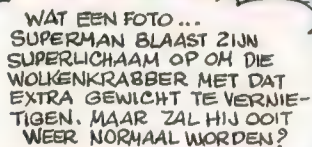 WAT EEN FOTO...
SUPERMAN BLAAST ZIJN
SUPERLICHAAM OP OM DIE
WOLKENKRABBER MET DAT
EXTRA GEWICHT TE VERNIE-
TIGEN. MAAR ZAL HIJ OOIT
WEER NORMAAL WORDEN?